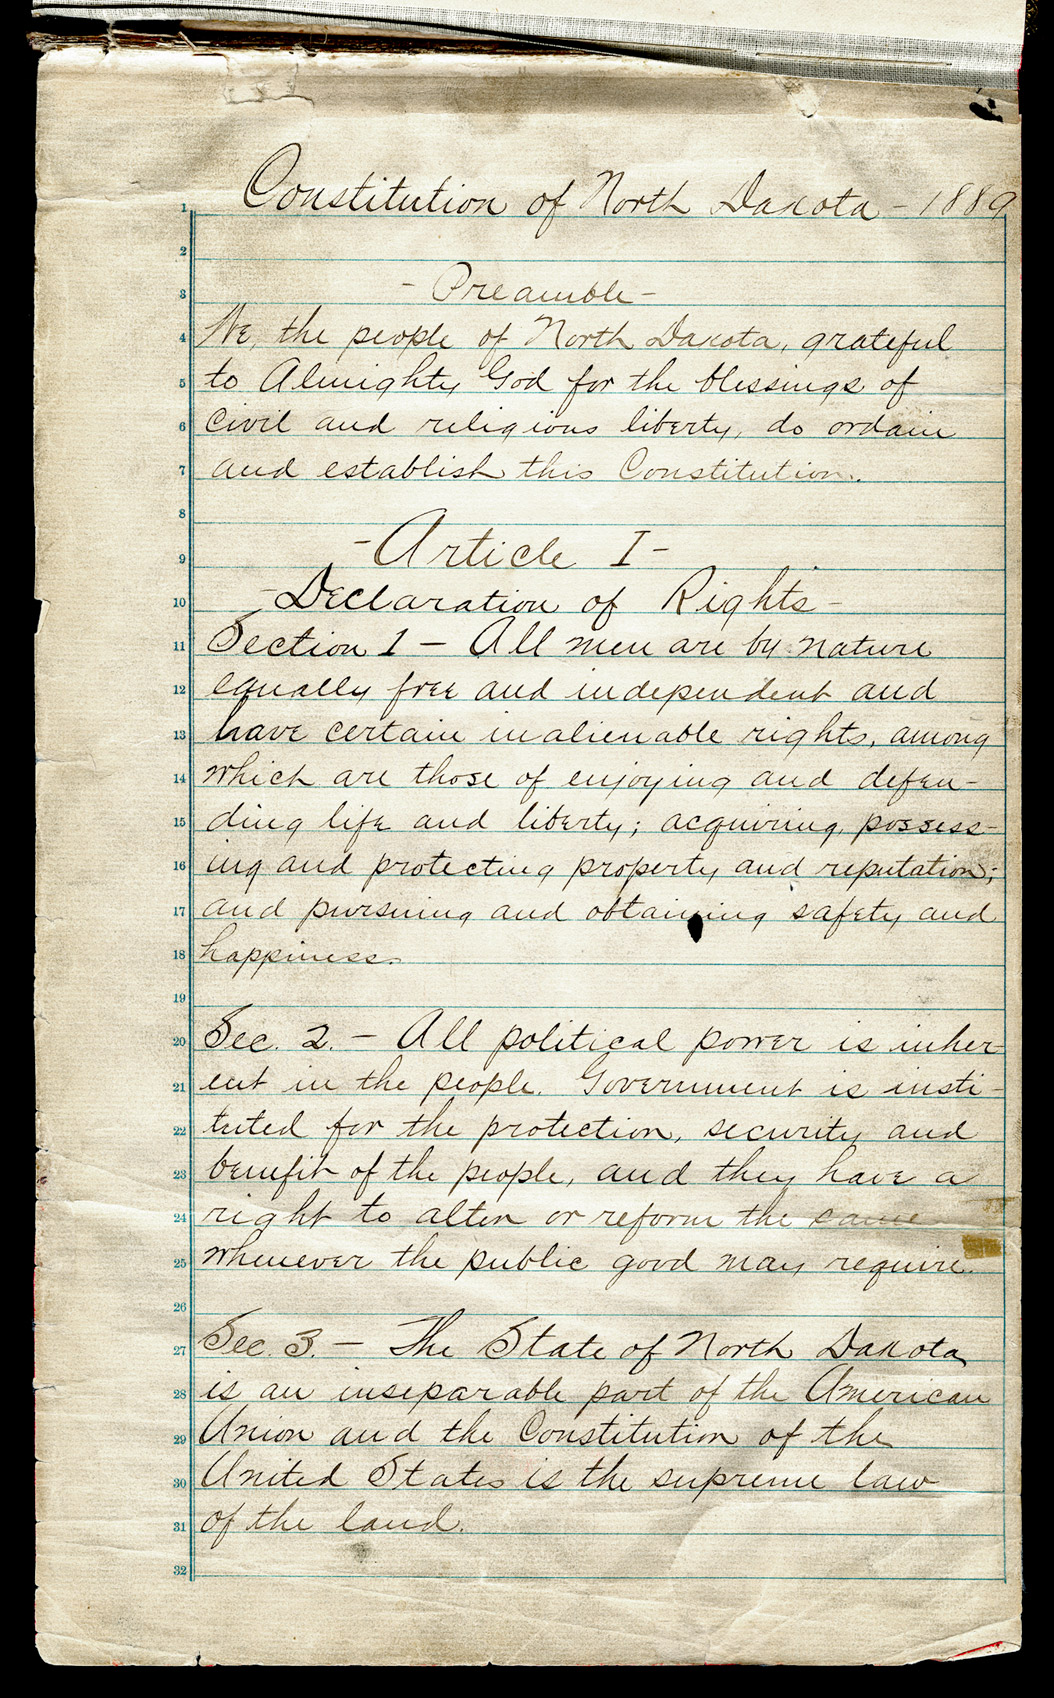 Constitution of North Dakota - 1889
1
2
- Preamble -
3
We, the people of North Dakota, grateful
4
to Almighty God for the blessings of
5
civil and religious liberty, do ordain
6
and establish this Constitution.
7
8
- Article I -
9
- Declaration of Rights -
10
Section 1 - All men are by nature
11
equally free and independent and
12
have certain inalienable rights, among
13
which are those of enjoying and defen-
14
ding life and liberty; acquiring, possess-
15
ing and protecting property and reputation;
16
and pursuing and obtaining safety and
17
happiness.
18
19
Sec. 2. - All political power is inher-
20
ent in the people. Government is insti-
21
tuted for the protection, security and
22
benefit of the people, and they have a
23
right to alter or reform the same
24
whenever the public good may require.
25
26
Sec. 3. - The State of North Dakota
27
is an inseparable part of the American
28
Union and the Constitution of the
29
United States is the supreme law
30
of the land.
31
32